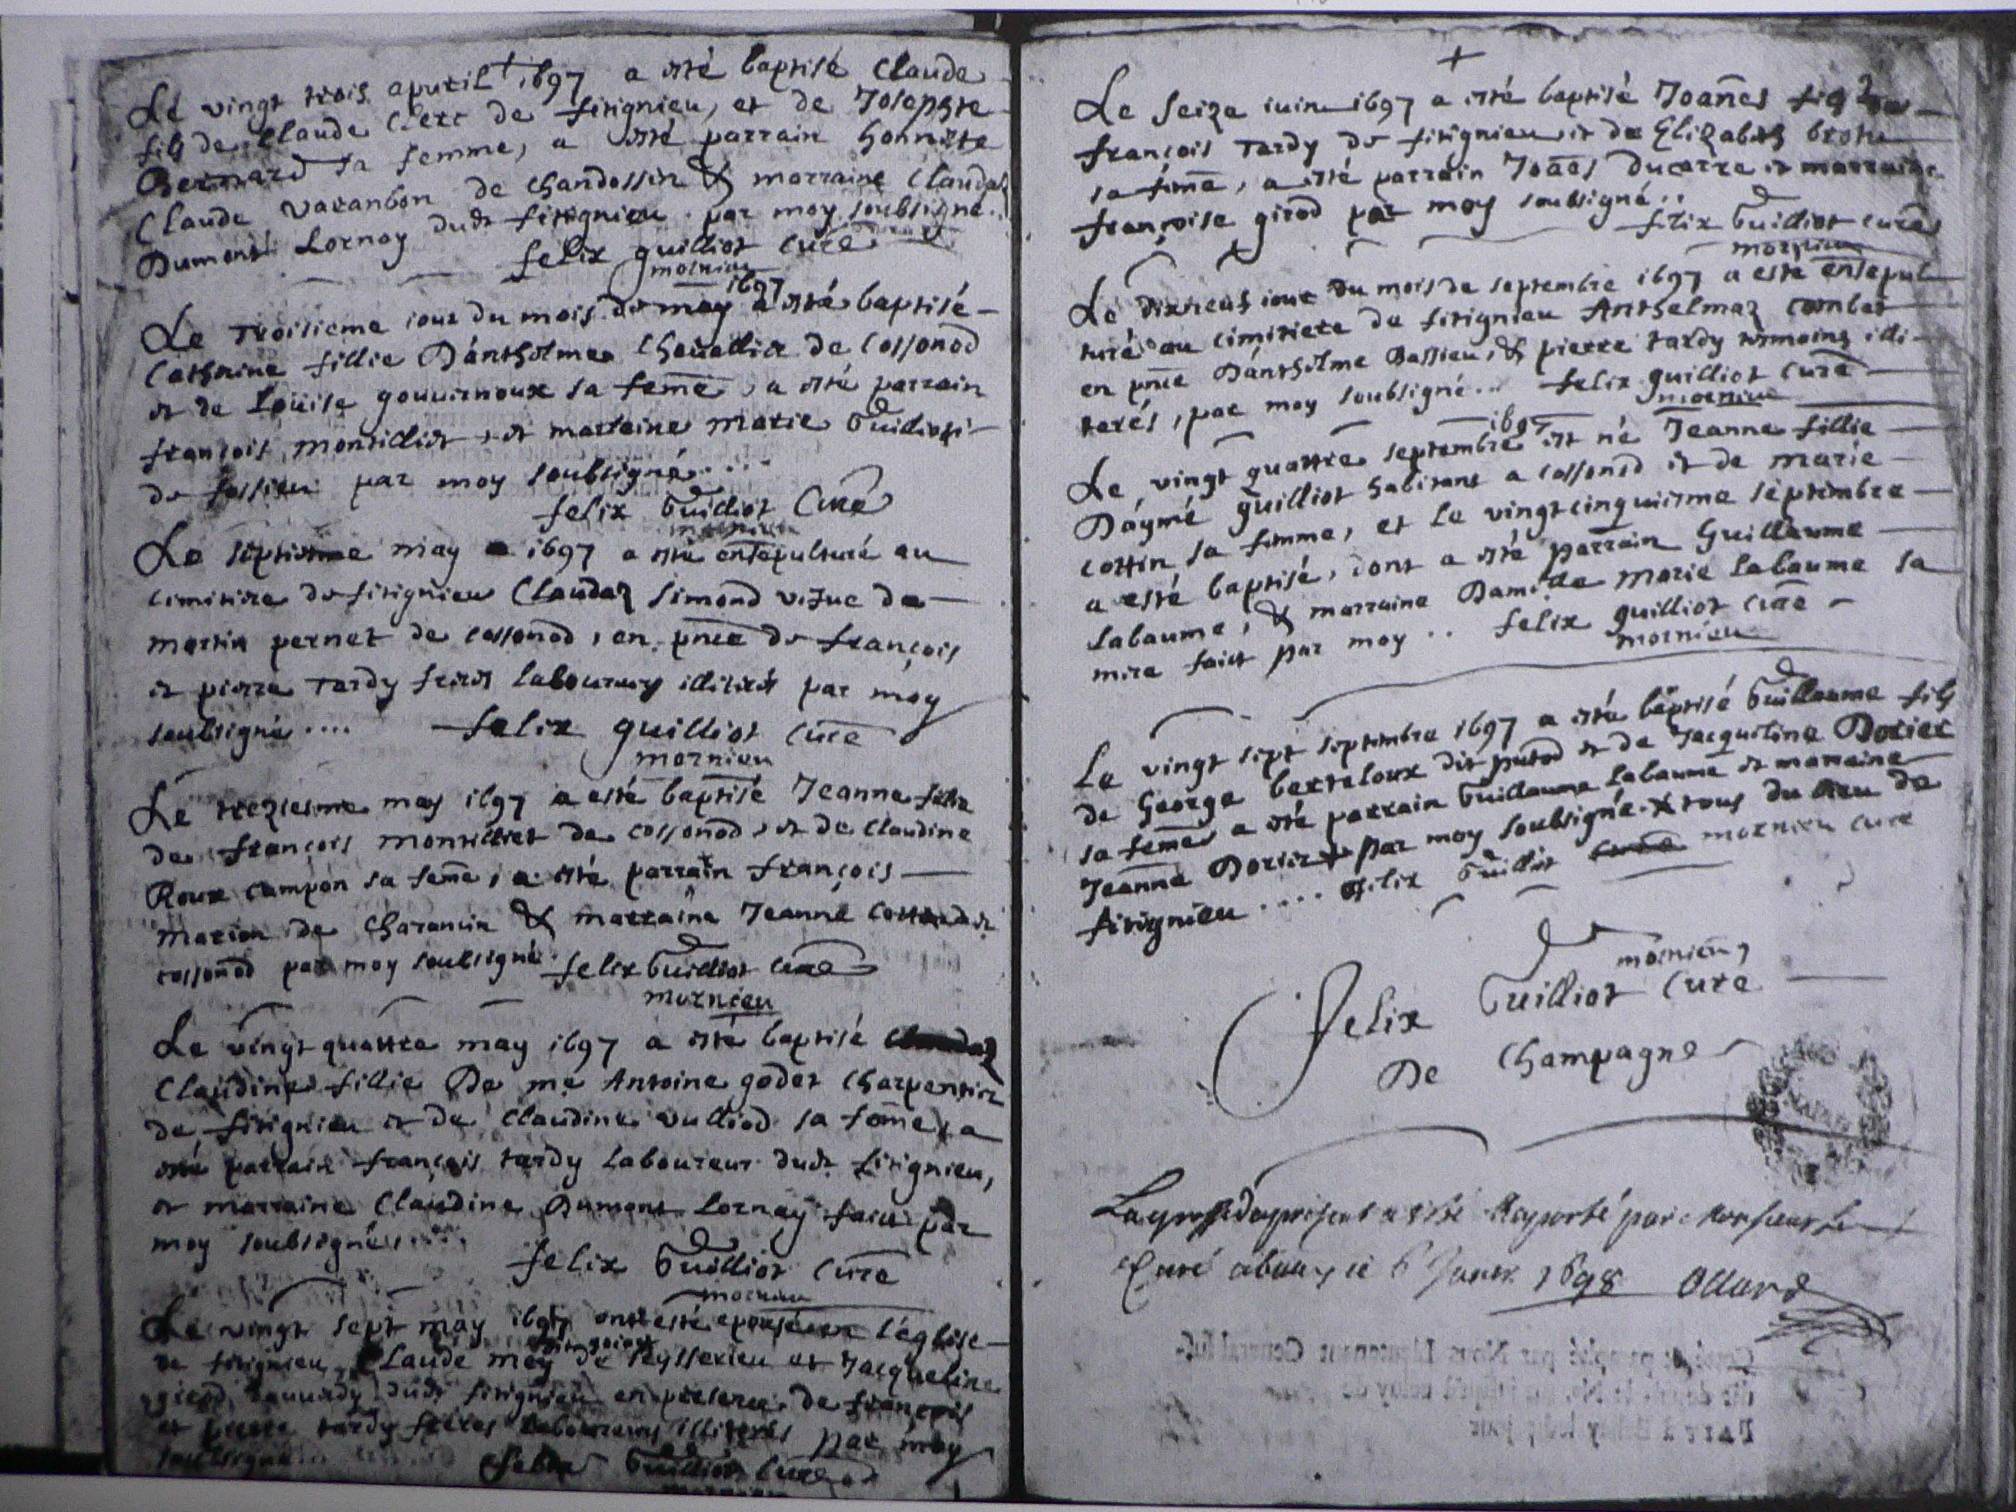 Le vingt trois apuril 1697 a esté baptisé Claude
fils de Claude Clerc de fitignieu, et de Josephte
Bernard sa femme, a esté parrain honneste
Claude Varanbon de Chandossin & marraine Claudaz
Dumont Lornay dudt fitignieu par moy soubsigné..
felix guilliot curé
mornieu
1697
Le troisieme iour du mois de may a esté baptisé
Catherine fillie Dántholme de Cossonod
et de Loüise gouuernoux sa feme, a esté parrain
françois montilliet, et marraine marie Guilliot
de par moy soubsigné....
felix Guilliot Curé
mornieu
Le septiesme may 1697 a esté entepulturé au
cimitire de fitignieu Claudaz Simond vefue de
martin pernet de cossonod, en pnce de françois
et pierre Tardy freres laboureurs illiterés par moy
soubsigné.... felix guilliot curé
mornieu
Le treziesme may 1697 a esté baptisé Jeanne fillie
de françois montilliet de cossonod, et de claudine
Roux campon sa feme, a esté parrain françois
marion de Charancin & marraine Jeanne
cossonod par moy soubsigné felix Guilliot curé
mornieu
Le vingt quattre may 1697 a esté baptisé
Claudine fillie De me Antoine godet charpentier
de fitignieu et de Claudine vulliod sa feme, a
esté parrain françois tardy laboureur dudt fitignieu,
et marraine Claudine Dumont Lornay faict par
moy soubsigné.....
felix Guilliot curé
mornieu
Le vingt sept may 1697 ont esté en l'église
de fitignieu Claude mey de seyssenieu et Jacqueline
girod dudt fitignieu en presence de françois
et pierre tardy freres laboureurs illiterés par moy
soubsigné felix Guilliot curé
Le seize iuin 1697 a esté baptisé Joanes fils de
françois Tardy de fitignieu et de Elizabeth
sa feme, a esté parrain Joanes Ducarre et marraine
françoise girod par moy soubsigné..
felix Guilliot curé
mornieu
Le dixneuf iour du mois de septembre 1697 a esté ensepul
turé au cimitiere de fitignieu Anthelmaz Combet
en pnce Dántholme Bassieu, & pierre tardy temoins illi
terés, par moy soubsigné... felix guilliot curé
mornieu
1697
Le vingt quattre septembre est né Jeanne fillie
Dáymé guilliot habitant a cossonod et de marie
cottin sa femme, et le vingtcinquiesme septembre
a esté baptisé, dont a esté parrain Guillaume
labaume, & marraine Damlle marie labaume sa
mere faict par moy.. felix guilliot curé
mornieu
Le vingt sept septembre 1697 a esté baptisé Guillaume fils
de George berteloux dit putod et de Jacqueline Dorier
sa feme a esté parrain Guillaume labaume et marraine
Jeanne Dorier par moy soubsigné. & tous du lieu de
fitignieu.... felix Guilliot mornieu curé
mornieu
Felix Guilliot Curé
De Champagne
a esté Raporté par Monsieur le
Curé 1698 Ollard